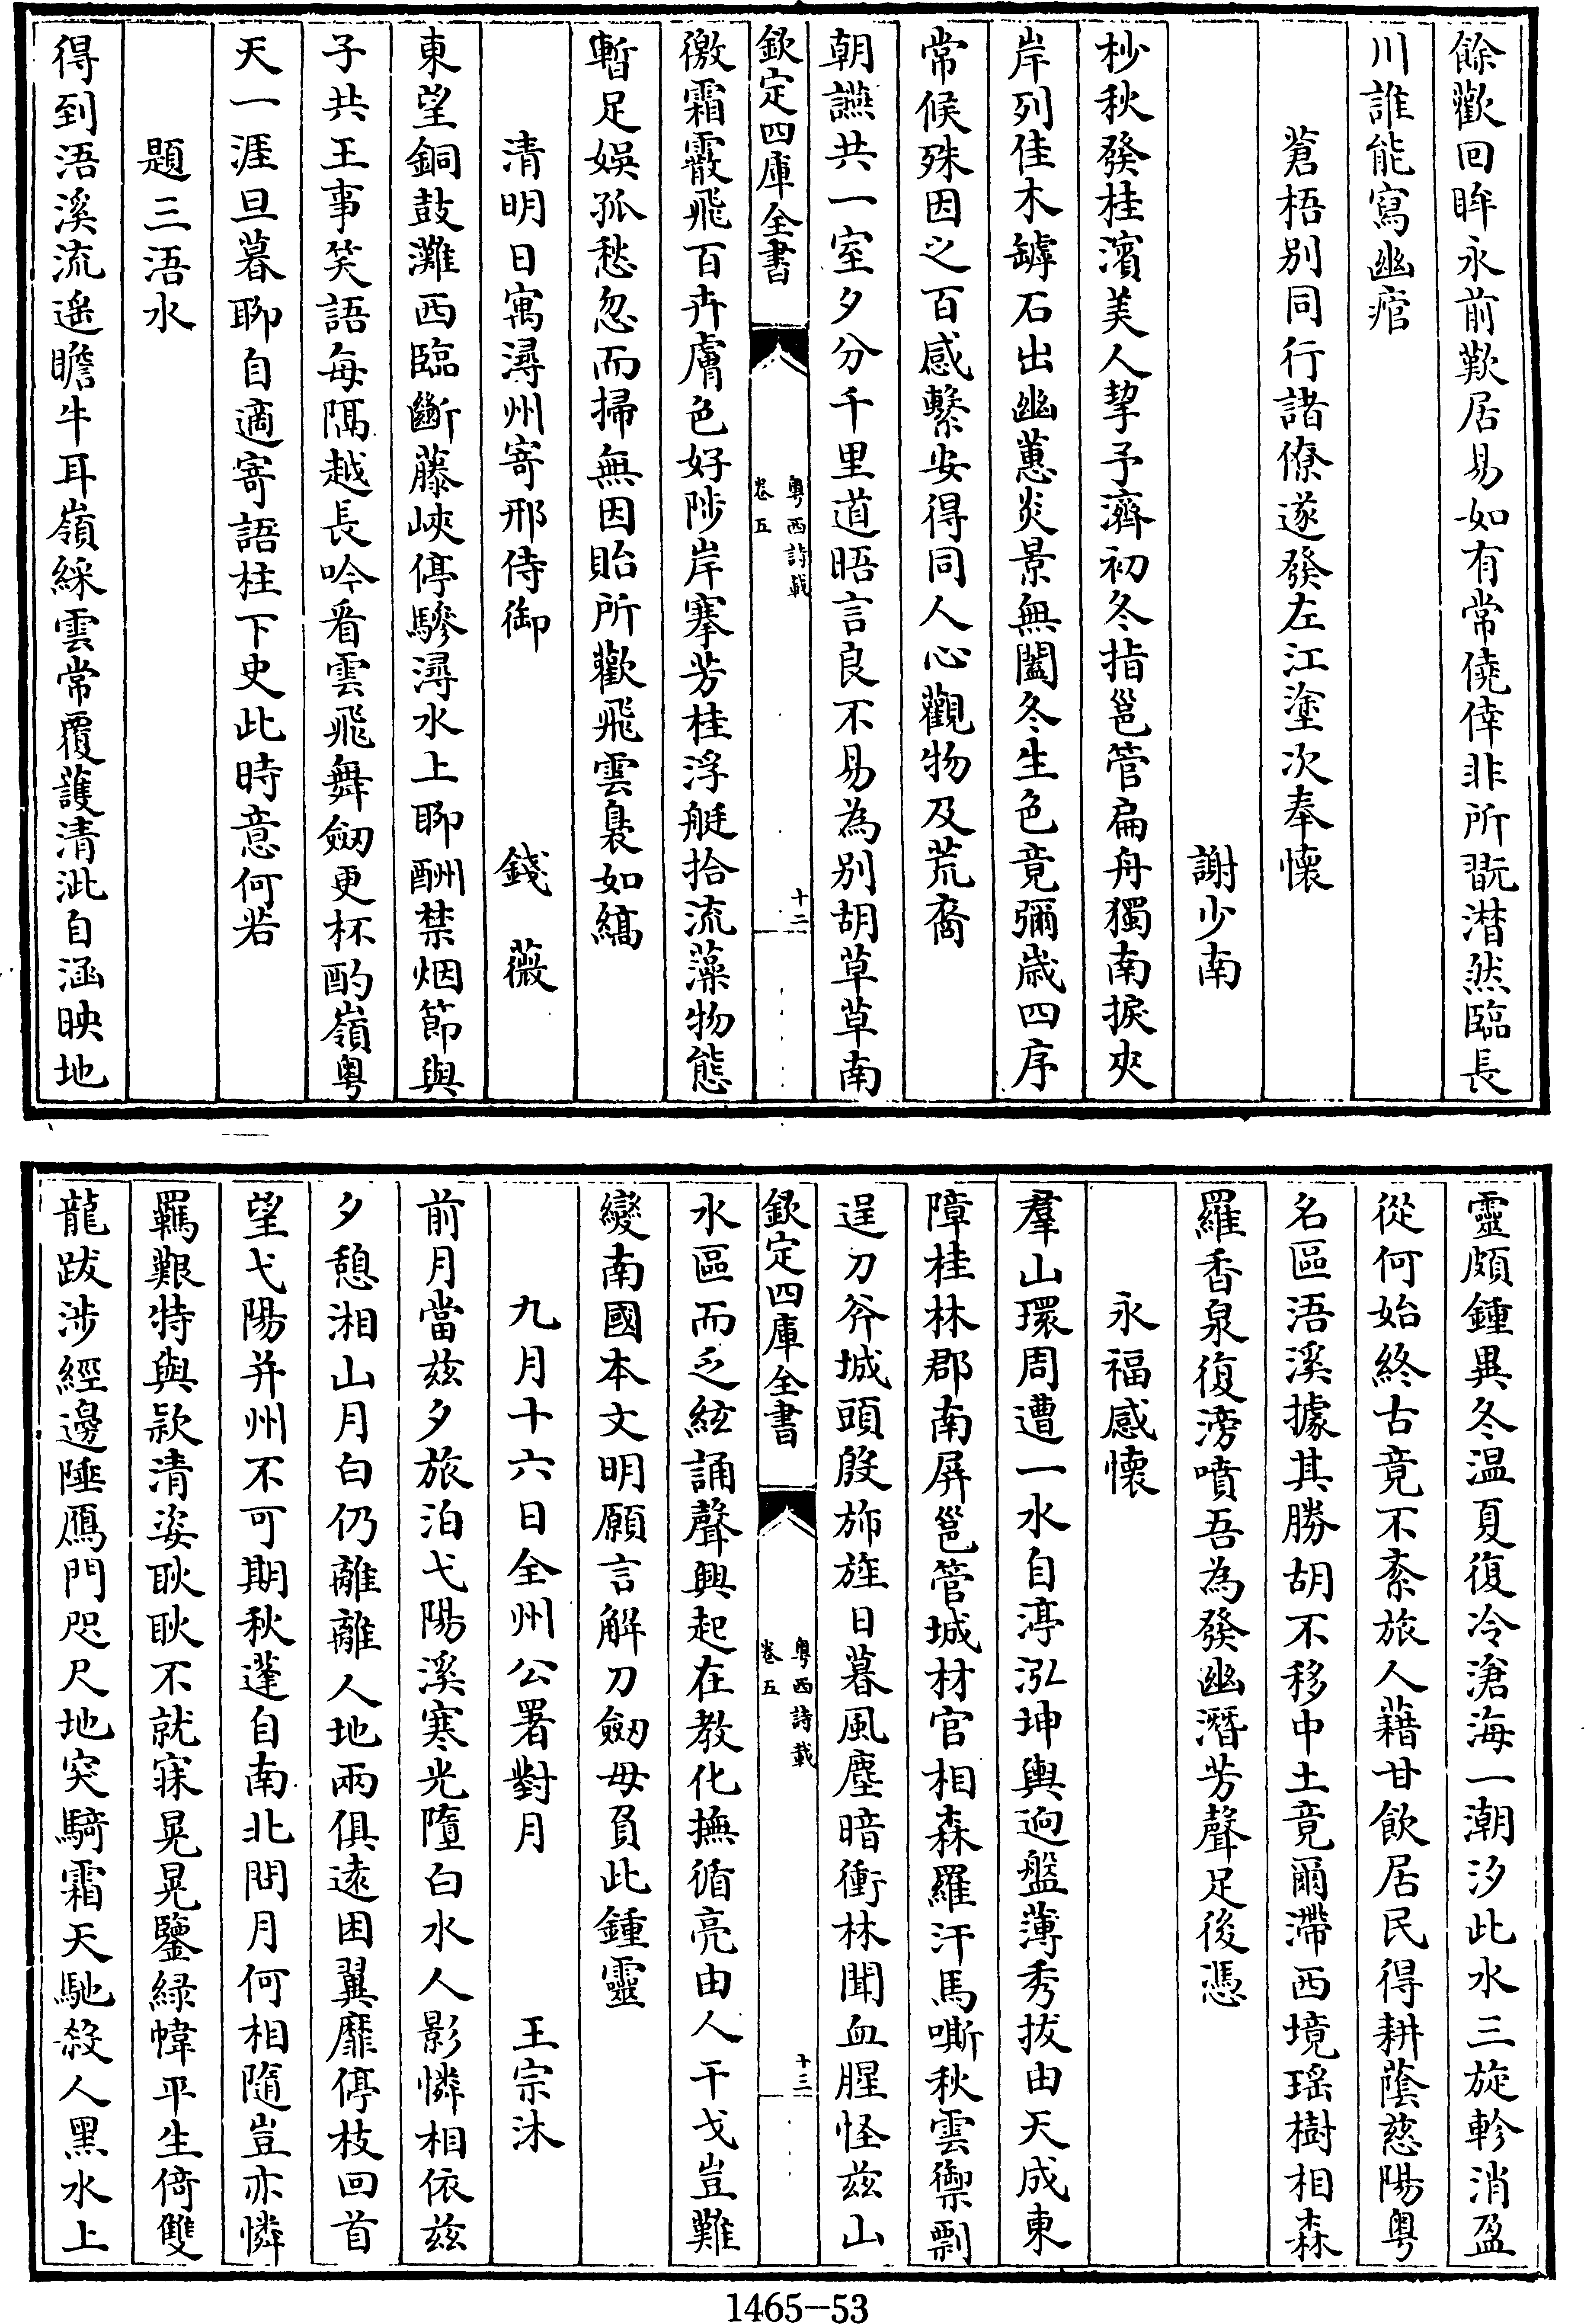 餘歡回眸永前歎居易如有常僥倖非所翫潸然臨長
川誰能寫幽痯
蒼梧別同行諸僚遂發左江塗次奉懷
謝少南
杪秋發桂濱美人挈予濟初冬指邕管扁舟獨南捩夾
岸列佳木罅石出幽蕙炎景無闔冬生色竟彌歳四序
常候殊因之百感繫安得同人心觀物及荒裔
朝讌共一室夕分千里道晤言良不易為別胡草草南
欽定四庫全書
粤西詩載
卷五
十二
徼霜霰飛百卉膚色好陟岸搴芳桂浮艇拾流藻物態
暫足娛孤愁忽而掃無因貽所歡飛雲裊如縞
清明日寓潯州寄邢侍御
錢薇
東望銅鼓灘西臨斷藤峽停驂潯水上聊酬禁烟節與
子共王事笑語每隔越長吟看雲飛舞劒更杯酌嶺粤
天一涯旦暮聊自適寄語柱下史此時意何若
題三浯水
得到浯溪流遥瞻牛耳嶺綵雲常覆護清泚自涵映地
靈頗鍾異冬温夏復冷滄海一潮汐此水三旋軫消盈
從何始終古竟不紊旅人藉甘飲居民得耕蔭慈陽粤
名區浯溪據其勝胡不移中土竟爾滯西境瑶樹相森
羅香泉復滂噴吾為發幽潛芳聲足後憑
永福感懷
羣山環周遭一水自渟泓坤輿迥盤薄秀拔由天成東
障桂林郡南屏邕管城材官相森羅汗馬嘶秋雲禦剽
逞刀斧城頭殷斾旌日暮風塵暗衝林聞血腥怪兹山
欽定四庫全書
粤西詩載
卷五
十三
水區而乏絃誦聲興起在教化撫循亮由人干戈豈難
變南國本文明願言解刀劒毋負此鍾靈
九月十六日全州公署對月
王宗沐
前月當兹夕旅泊弋陽溪寒光墮白水人影憐相依兹
夕憩湘山月白仍離離人地兩俱逺困翼靡停枝回首
望弋陽并州不可期秋蓬自南北問月何相隨豈亦憐
羈艱特與欵清姿耿耿不就寐晃晃鑒緑幃平生倚雙
龍跋涉經邊陲鴈門咫尺地突騎霜天馳殺人黑水上
1465-53